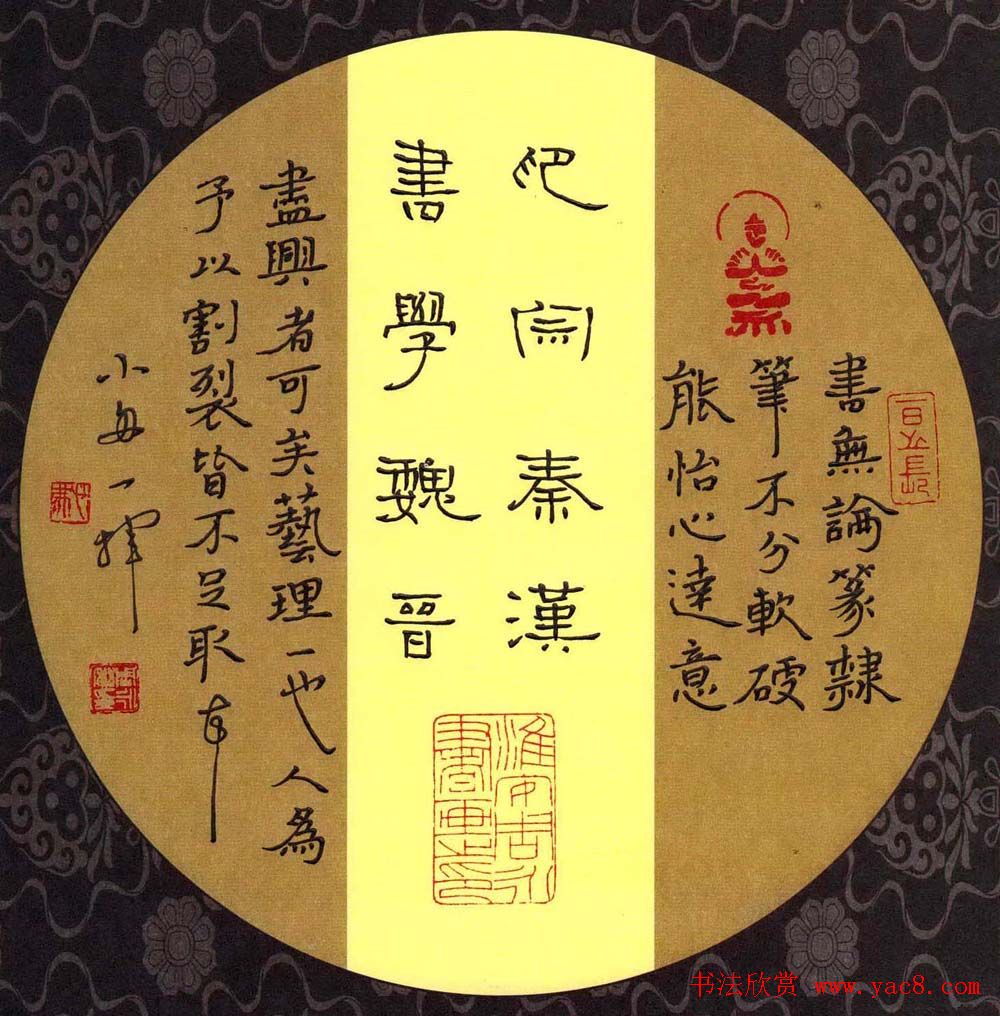 書無論篆隸
筆不分軟硬
能怡心達意
印宗秦漢
書學魏晉
盡興者可矣藝理一也人為
予以割裂皆不足取
小舟一揮
书法欣赏 www.yac8.com